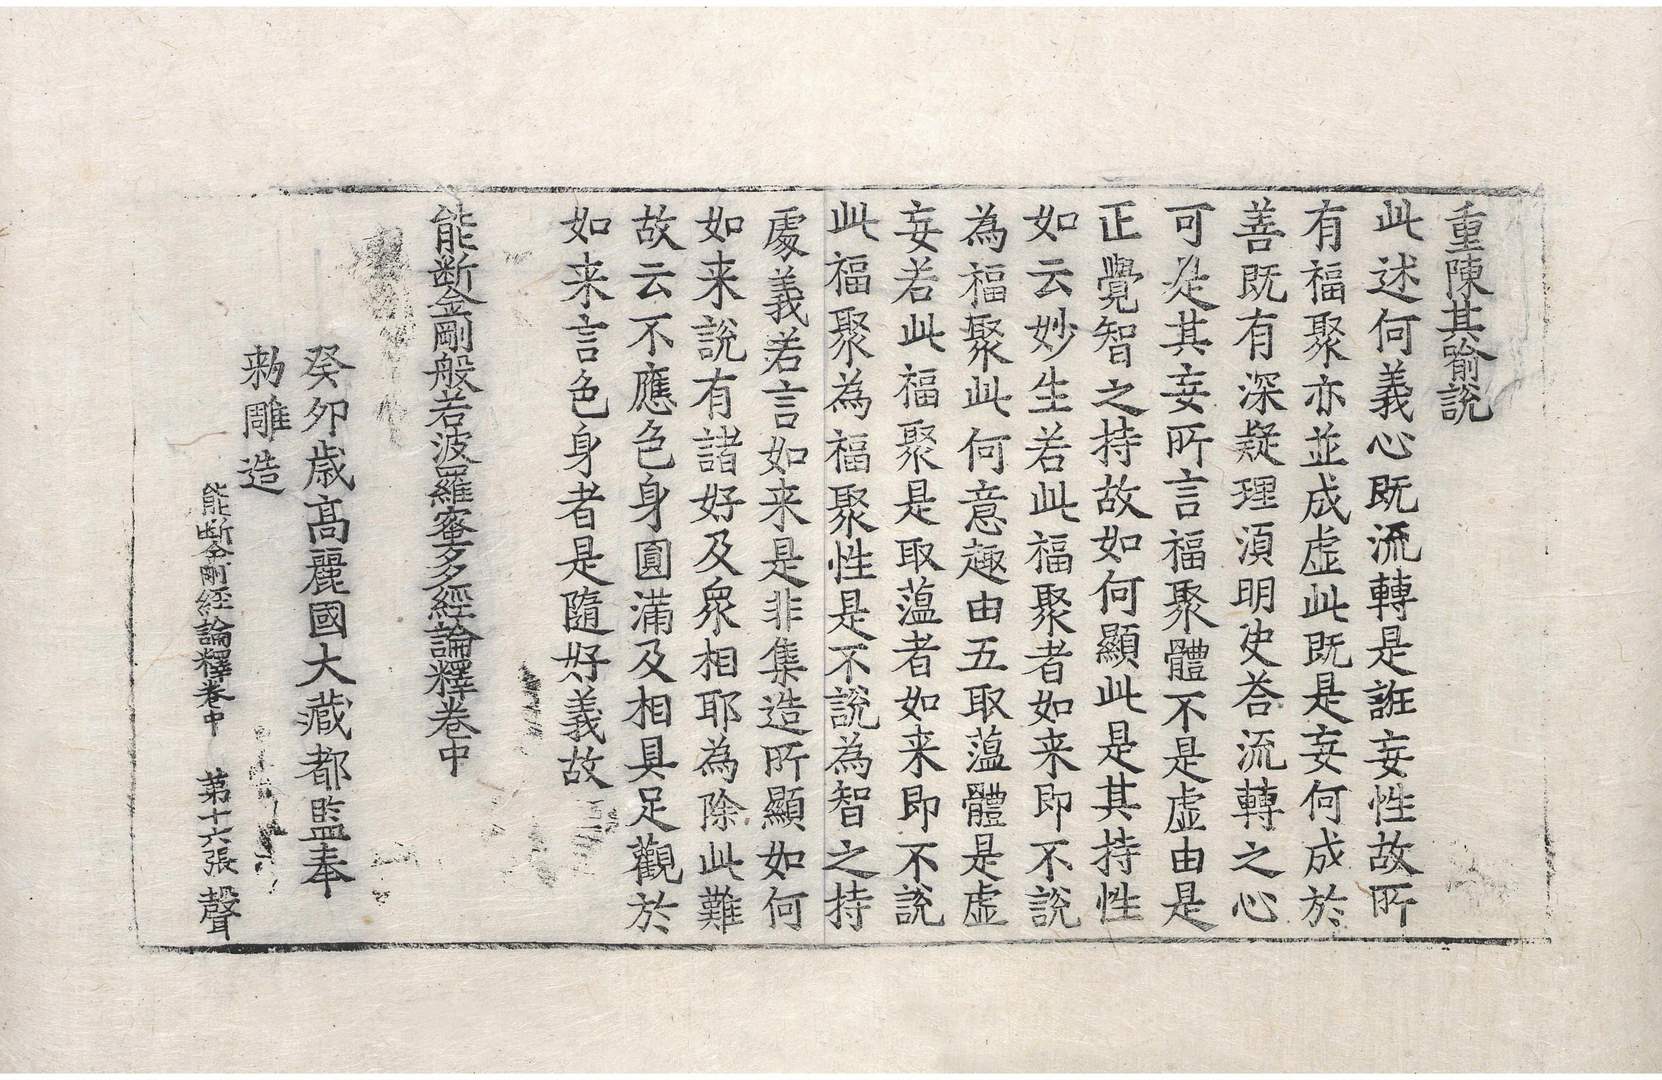 重陳其喻說
此述何義心既流轉是誑妄性故所
有福聚亦並成虛此既是妄何成於
善既有深疑理須明史荅流轉之心
可是其妄所言福聚體不是虛由是
正覺智之持故如何顯此是其持性
如云妙生若此福聚者如来即不說
為福聚此何意趣由五取薀體是虛
妄若此福聚是取薀者如来即不說
此福聚為福聚性是不說為智之持
處義若言如来是非集造所顯如何
如来說有諸好及衆相耶為除此難
故云不應色身圓滿及相具足觀於
如来言色身者是隨好義故
能断金剛般若波羅蜜多經論釋卷中
癸卯歲高麗國大藏都監奉
勑雕造
能断金剛經論釋卷中 第十六張 聲